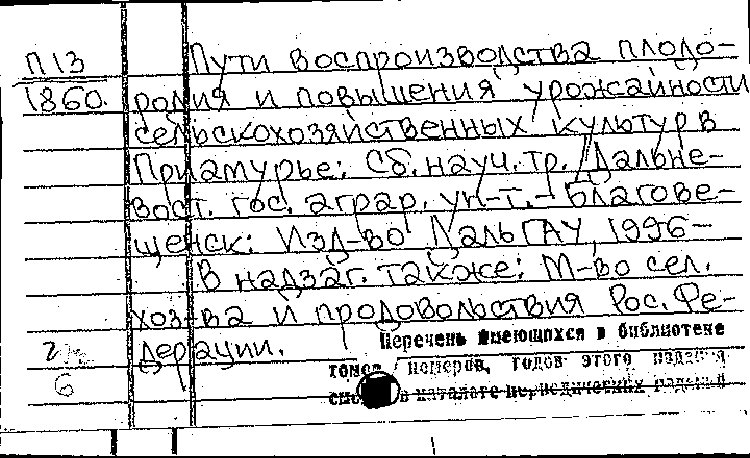 П13 Пути воспроизводства плодо-
1860. родия и повышения урожайности
сельскохозяйственных культур в
Приамурье: Сб. науч. тр. / Дальне-
вост. гос. аграр. ун-т. - Благове-
щенск: Изд-во ДальГАУ, 1996-
В надзаг. также: М-во сел.
хоз-ва и продовольствия Рос. Фе-
дерации.
Перечень имеющихся в библиотеке
томов, номеров, годов этого издания
в каталоге периодических изданий
6